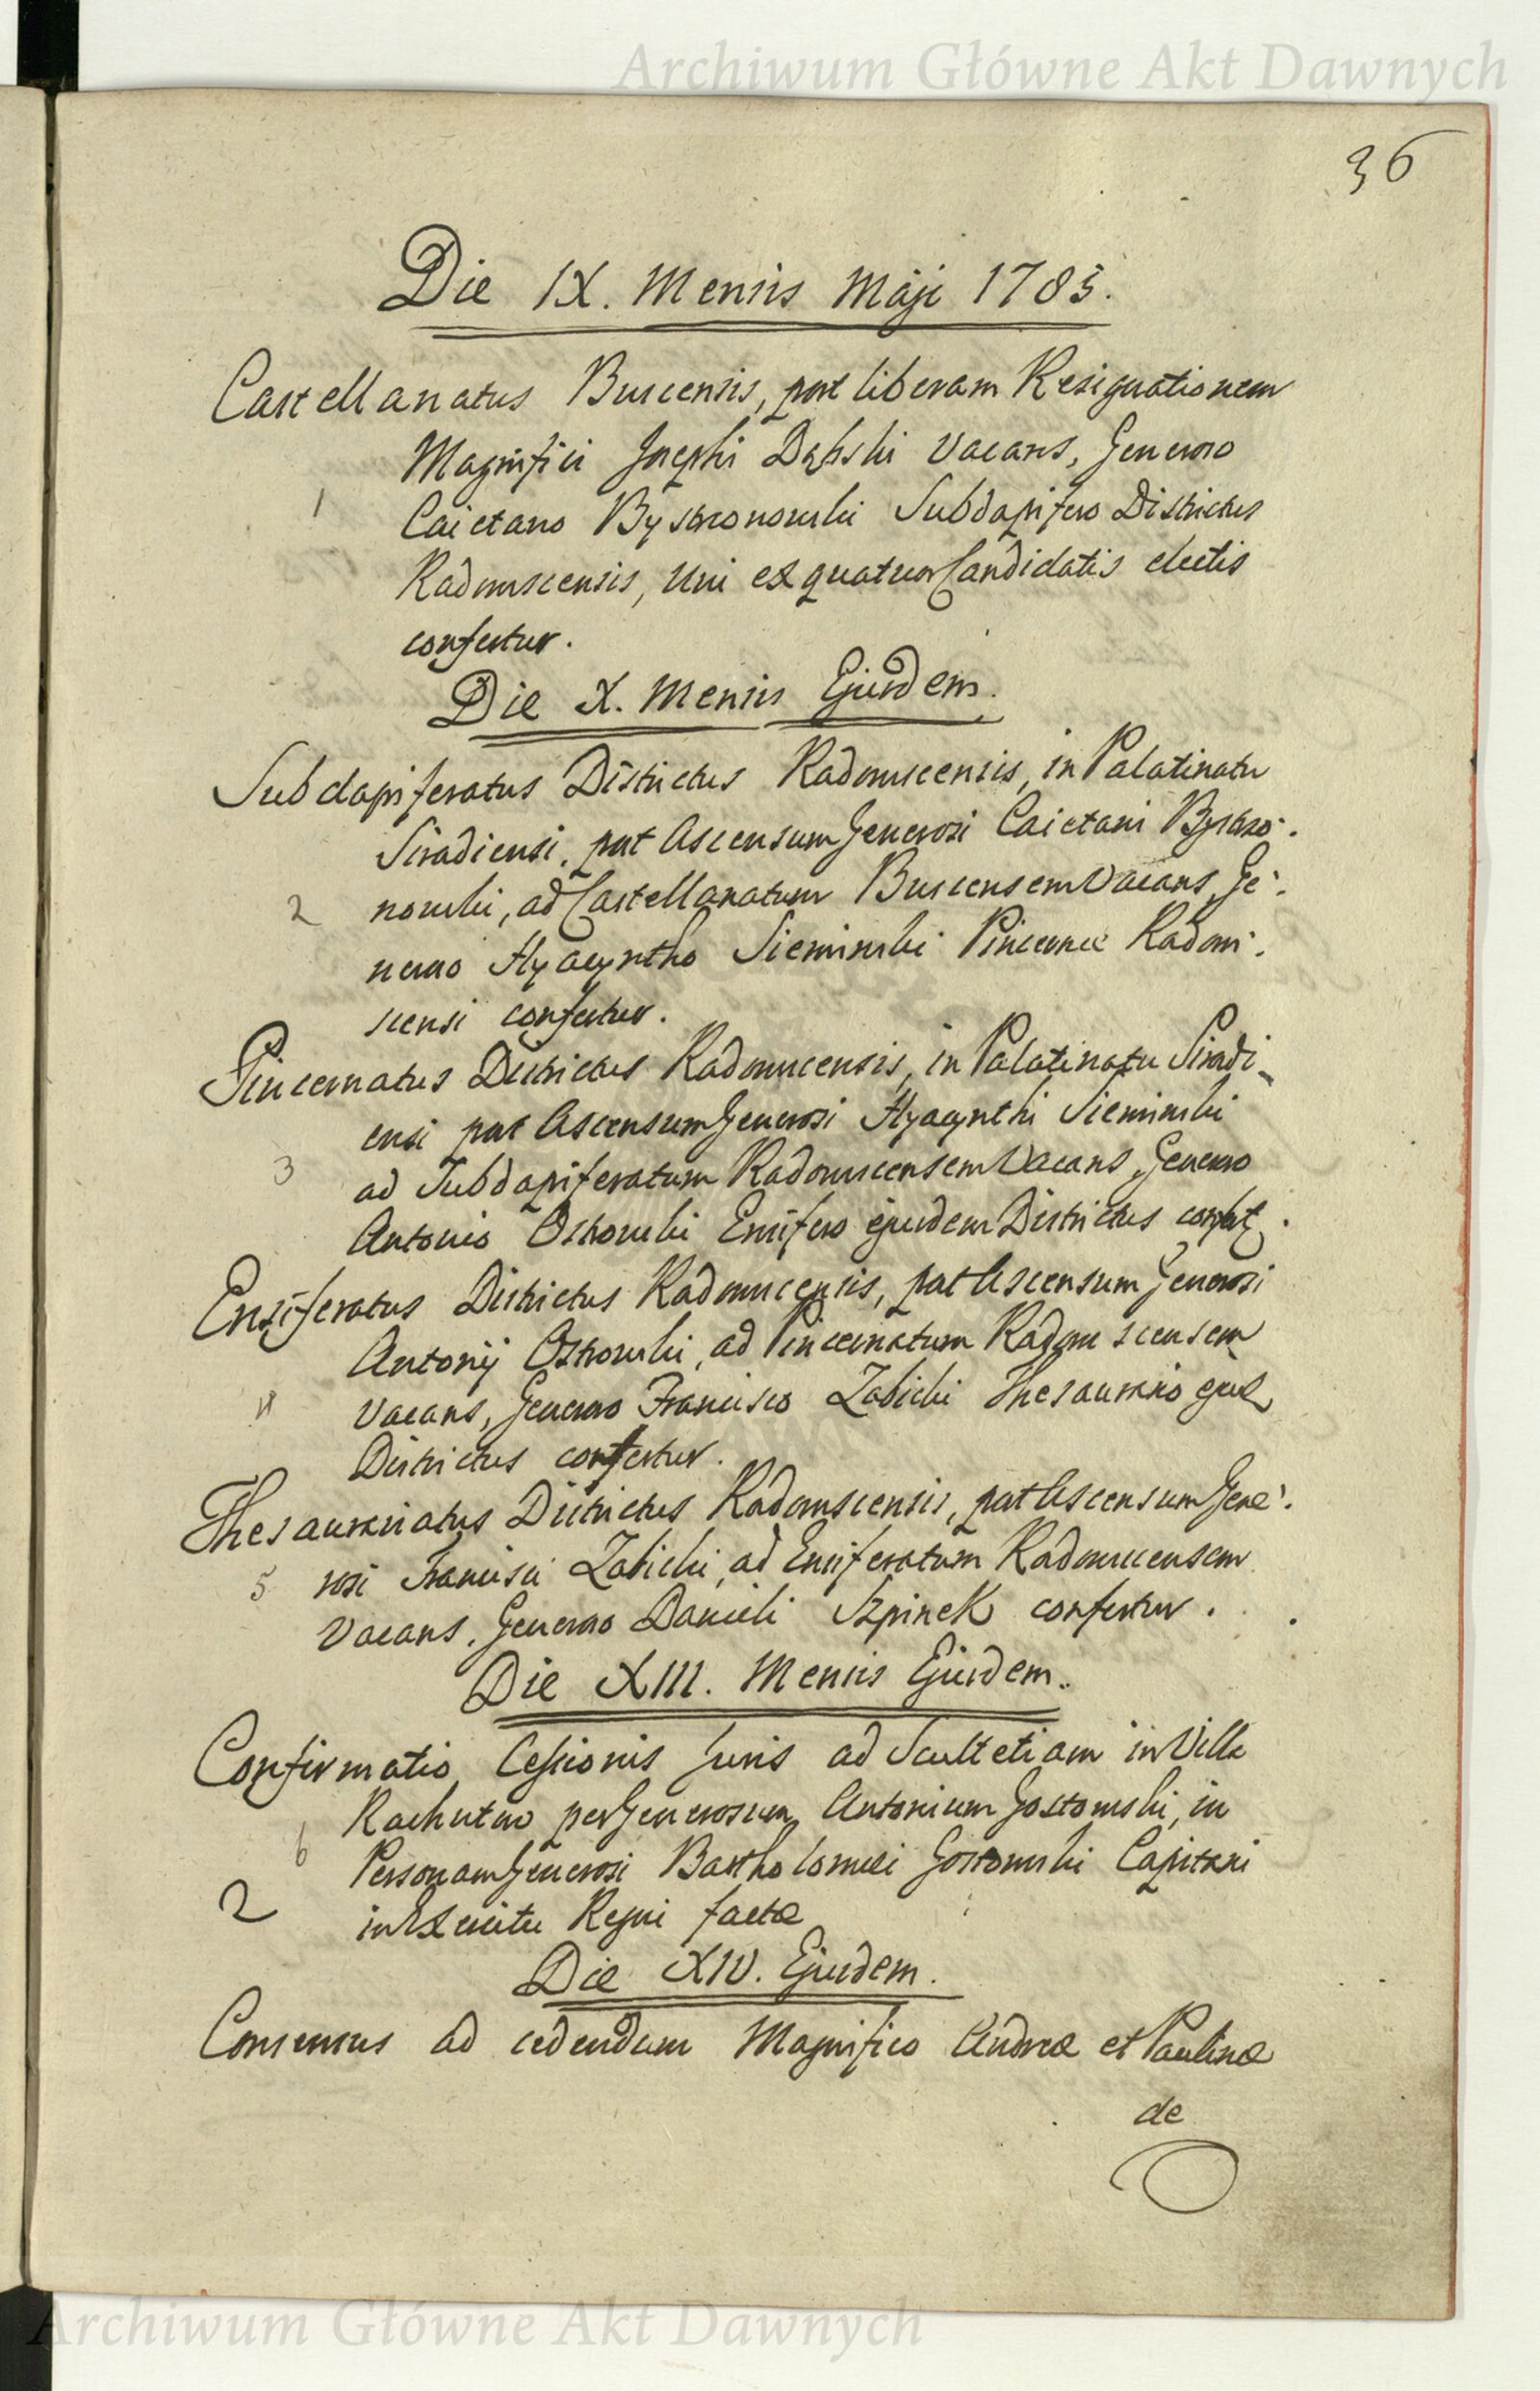 Archiwum Główne Akt Dawnych
36
Die IX. Mensis Maji 1783.
Castellanatus Buscensis, post liberam Resignationem
Magnifici Josephi Dąbski Vacans, Generoso
1 Caietano Bystrzonowski Subdapifero Districtus
Radomscensis, Uni ex quatuor Candidatis electis
confertur.
Die X. Mensis Ejusdem.
Subdapiferatus Districtus Radomscensis, in Palatinatu
Siradiensi, post Ascensum Generosi Caietani Bystrzo-
2 nowski, ad Castellanatum Buscensem Vacans, Ge-
neroso Hyacyntho Siemiński Pincernæ Radom-
scensi confertur.
Pincernatus Districtus Radomscensis, in Palatinatu Siradi-
ensi post Ascensum Generosi Hyacynthi Siemiński
3 ad Subdapiferatum Radomscensem Vacans, Generoso
Antonio Ostrowski Ensifero ejusdem Districtus confert.
Ensiferatus Districtus Radomscensis, post Ascensum Generosi
Antonij Ostrowski, ad Pincernatum Radomscensem
4 Vacans, Generoso Francisco Zabicki Thesaurario ejusd
Districtus confertur.
Thesaurariatus Districtus Radomscensis, post Ascensum Gene-
5 rosi Francisci Zabicki, ad Ensiferatum Radomscensem
Vacans, Generoso Danieli Szpinek confertur.
Die XIII. Mensis Ejusdem.
Confirmatio Cessionis Juris ad Scultetiam in Villa
Rachutno per Generosum Antonium Gostomski, in
6 Personam Generosi Bartholomei Gostomski Capitani
2 in Exercitu Regni factæ
Die XIV. Ejusdem.
Consensus ad cedendum Magnifico Andreæ et Paulinæ
de
Archiwum Główne Akt Dawnych